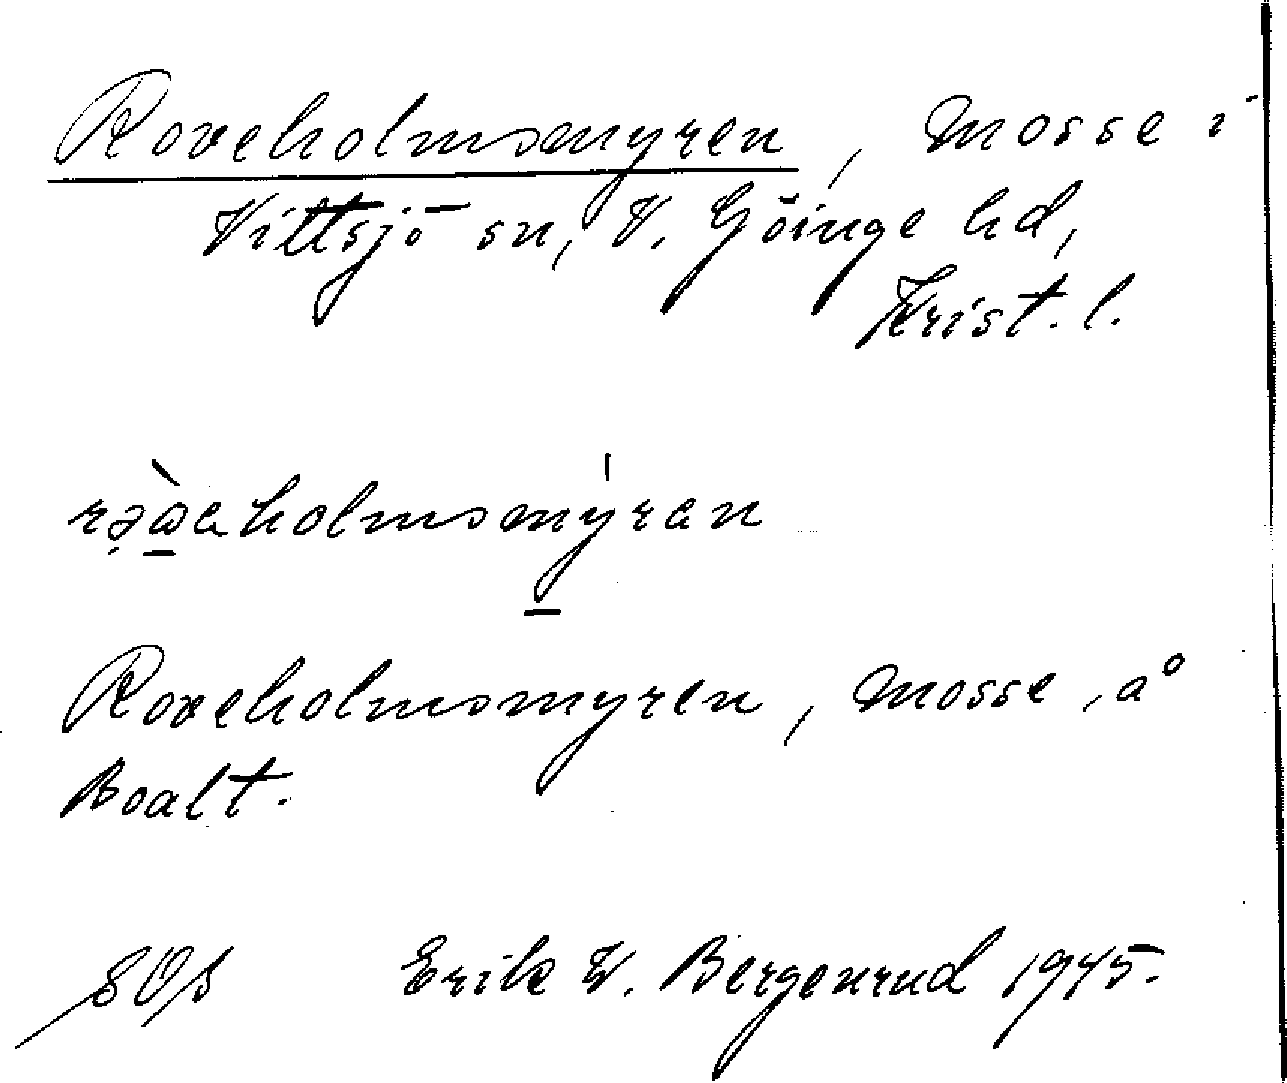 Roveholmsmyren, mosse i
Vittsjö sn, V. Göinge hd,
Krist. l.
Roveholmsmyren, mosse, å
Boalt.
Erik W. Bergenrud 1945.